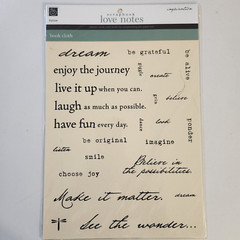 love notes
dream
be grateful
be alive
enjoy the journey
create
live it up when you can.
give
believe
laugh as much as possible.
have fun every day.
look
ponder
be original
imagine
listen
smile
choose joy
Believe in
the possibilities.
Make it matter.
dream
See the wonder...